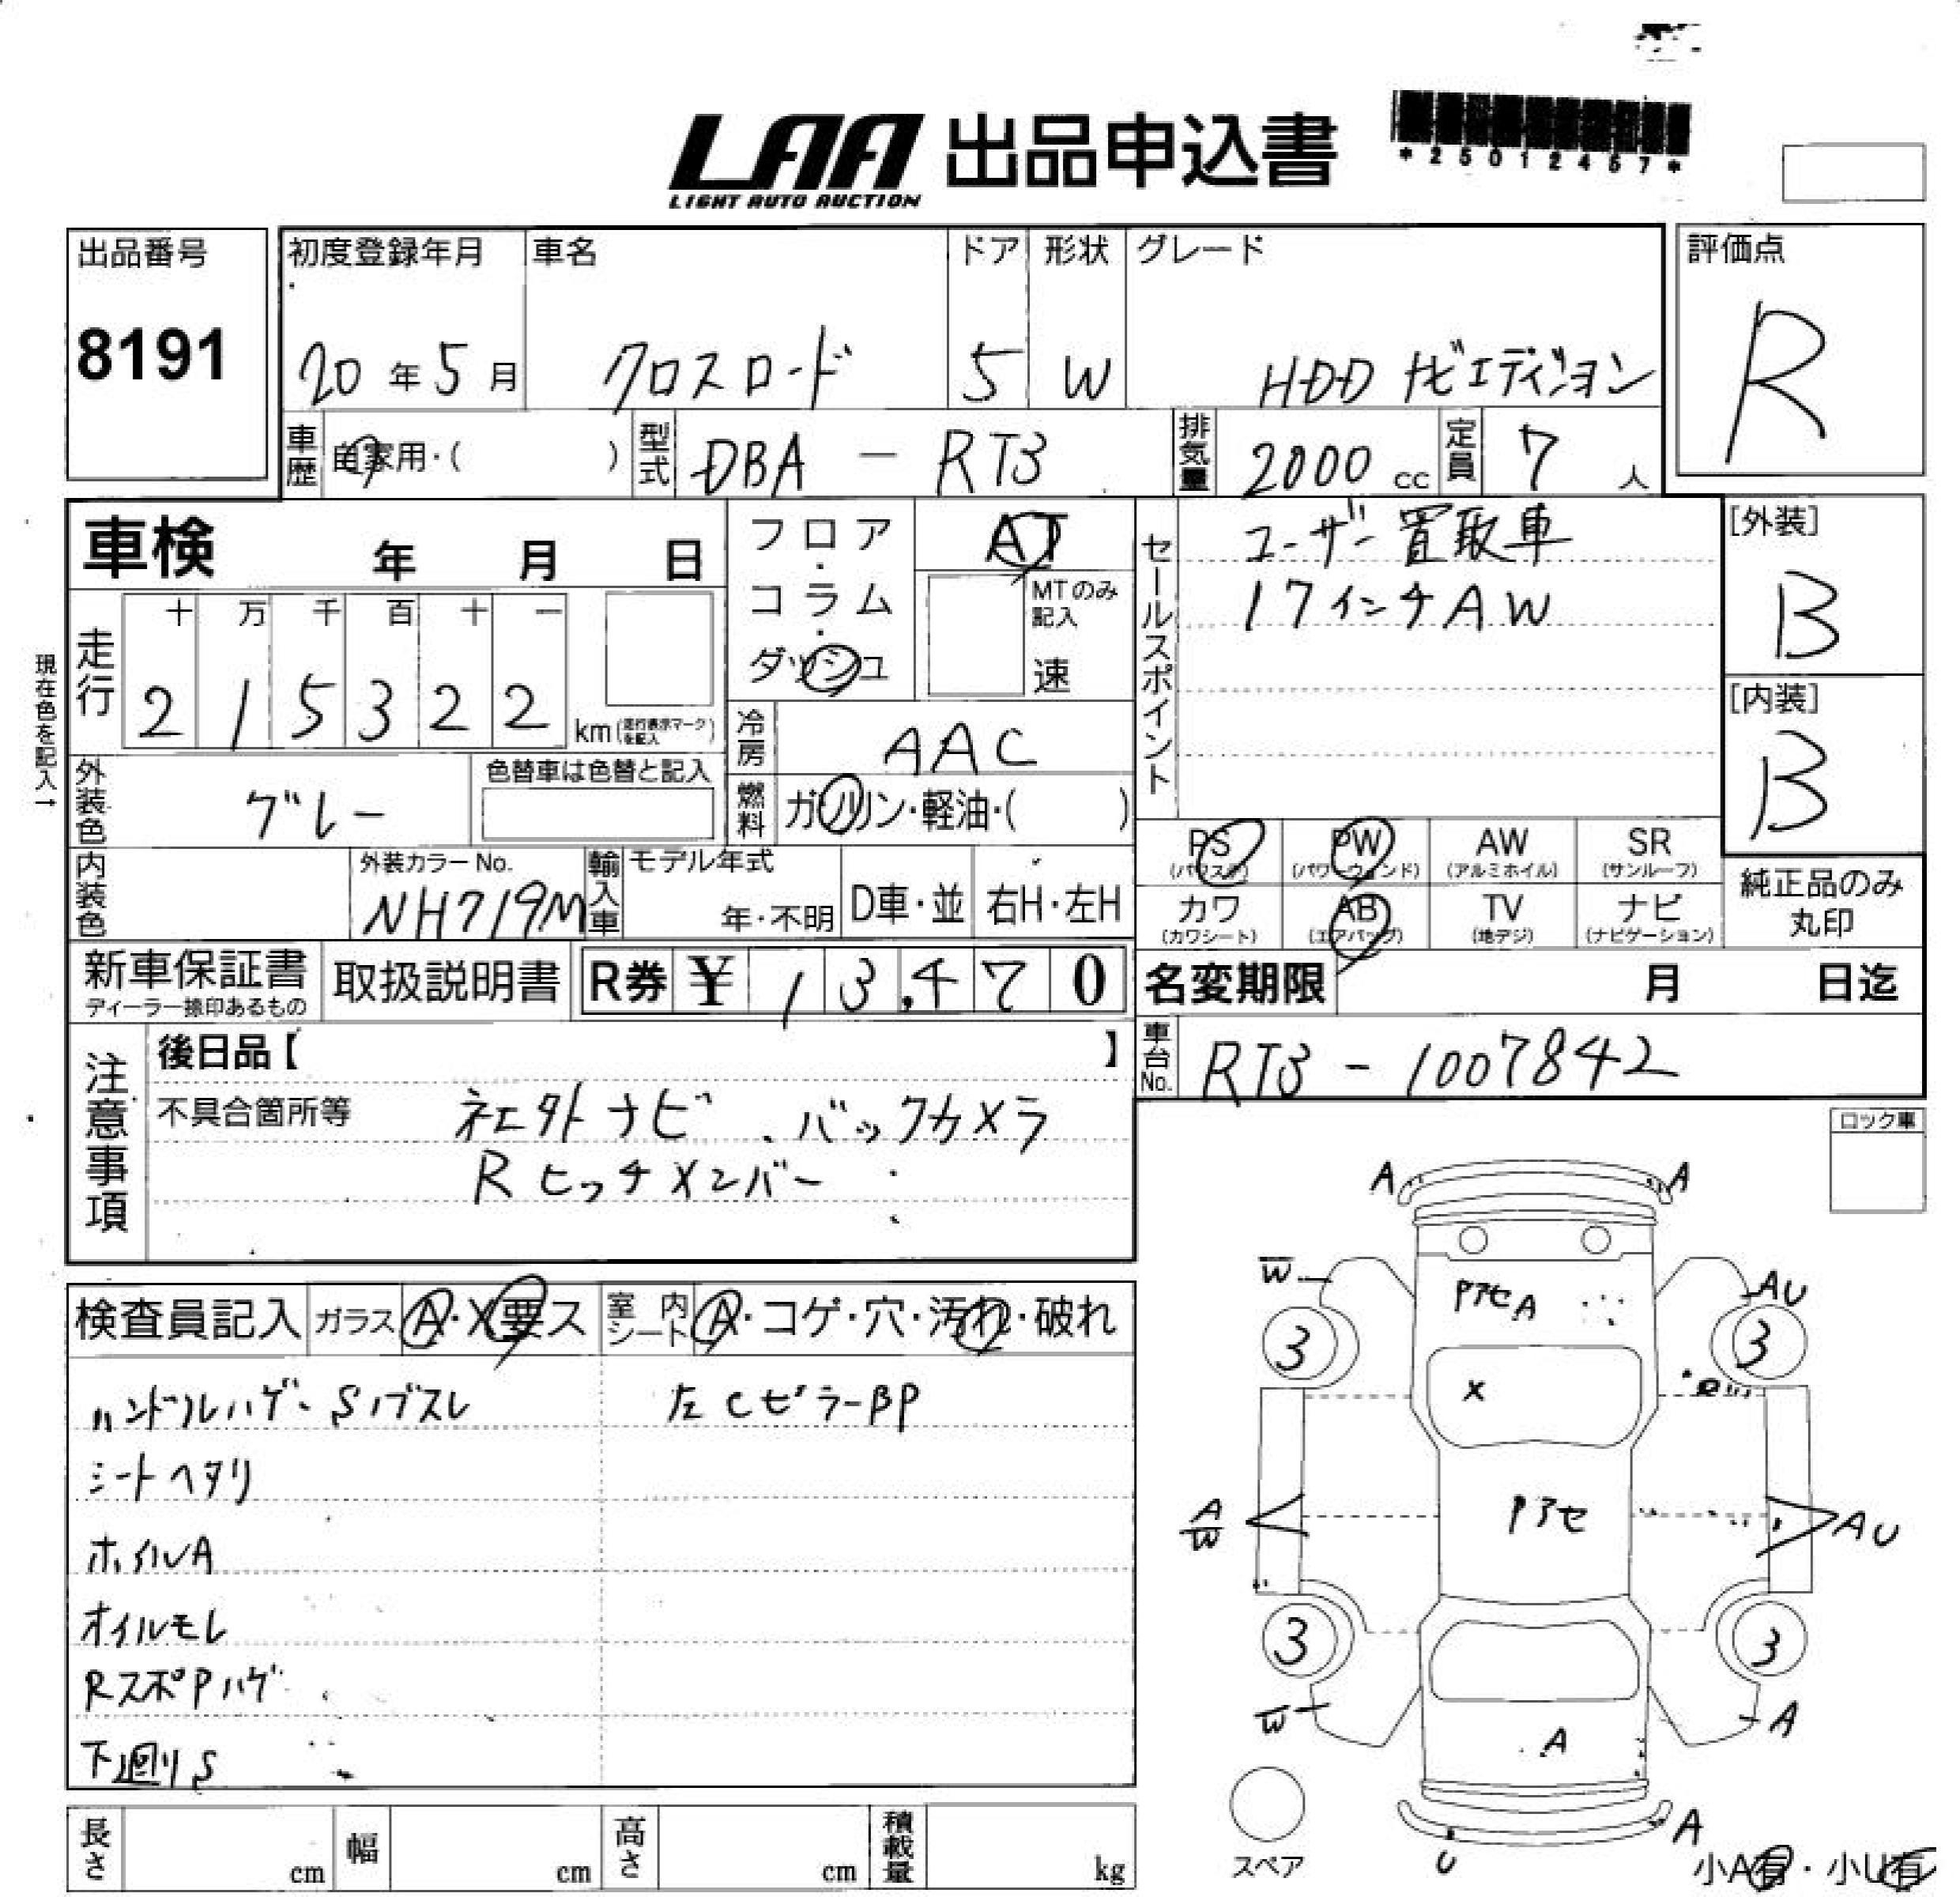 LAA 出品申込書
LIGHT AUTO AUCTION
*25012457*
出品番号 初度登録年月 車名 ドア 形状 グレード 評価点
8191 20年5月 クロスロード 5 W HDD ナビエディション R
車歴 自家用・( ) 型式 DBA - RT3 排気量 2000cc 定員 7人
車検 年 月 日
フロア・コラム・ダッシュ
AT
MTのみ記入
速
セールスポイント
ユーザー買取車
17インチAW
[外装]
B
[内装]
B
現在色を記入→
走行 十 万 千 百 十 一
2 1 5 3 2 2 km (走行表示マークを記入)
冷房 AAC
外装色 グレー 色替車は色替と記入
燃料 ガソリン・軽油・( )
内装色 外装カラーNo. NH719M 輸入車 モデル年式 年・不明 D車・並 右H・左H
PS (パワステ) PW (パワーウィンド) AW (アルミホイル) SR (サンルーフ)
カワ (カワシート) AB (エアバッグ) TV (地デジ) ナビ (ナビゲーション)
純正品のみ丸印
新車保証書 ディーラー捺印あるもの 取扱説明書 R券 ¥ 13,470
名変期限 月 日迄
車台No. RT3 - 1007842
注意事項
後日品【 】
不具合箇所等 社外ナビ、バックカメラ
Rヒッチメンバー
ロック車
検査員記入 ガラス A・X要ス 室内シート A・コゲ・穴・汚れ・破れ
ハンドルハゲ・Sノブスレ 左CピラーBP
シートヘタリ
ホイルA
オイルモレ
RスポPハゲ
下廻りS
A A
W PアセA AU
3 3
X
A W Pアセ AU
3 3
W A
A
A
U
スペア
小A有・小U有
長さ cm 幅 cm 高さ cm 積載量 kg